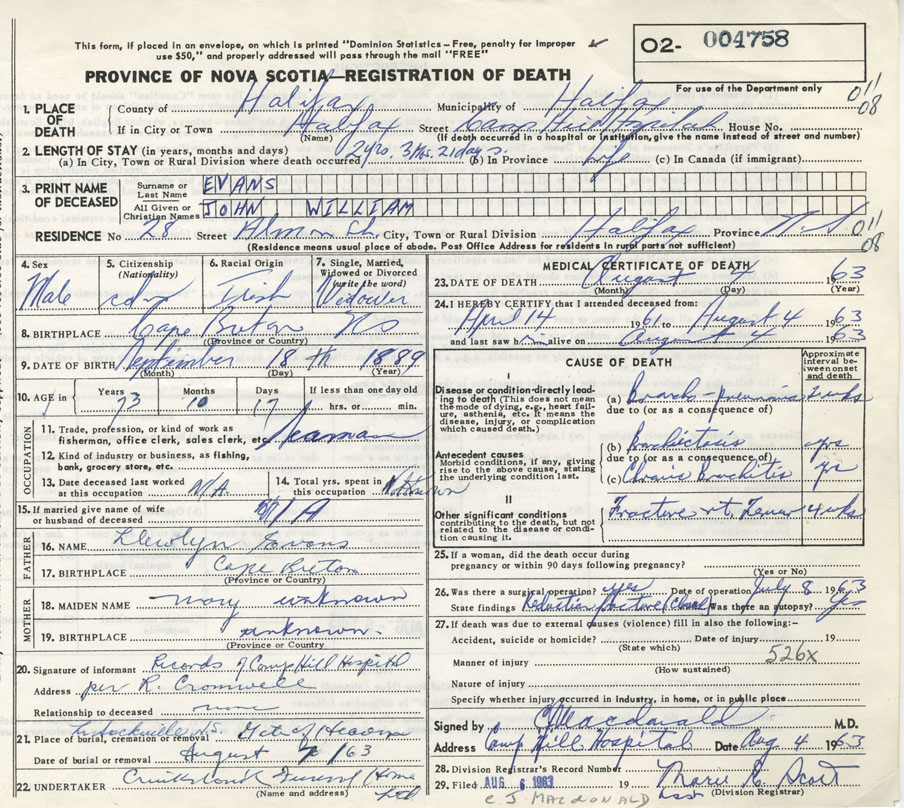 This form, if placed in an envelope, on which is printed "Dominion Statistics—Free, penalty for improper
use $50," and properly addressed will pass through the mail "FREE"
02- 004758
PROVINCE OF NOVA SCOTIA—REGISTRATION OF DEATH
For use of the Department only
011
08
1. PLACE OF DEATH County of Halifax Municipality of Halifax
If in City or Town Halifax Street Camp Hill Hospital House No.
(Name) (If death occurred in a hospital or institution, give the name instead of street and number)
2. LENGTH OF STAY (in years, months and days)
(a) In City, Town or Rural Division where death occurred 2 yrs. 3 Mos. 21 days. (b) In Province Life (c) In Canada (if immigrant)
3. PRINT NAME OF DECEASED Surname or Last Name EVANS
All Given or Christian Names JOHN WILLIAM
RESIDENCE No 28 Street Almon St. City, Town or Rural Division Halifax Province N.S
011
08
(Residence means usual place of abode. Post Office Address for residents in rural parts not sufficient)
4. Sex Male
5. Citizenship (Nationality) cdn
6. Racial Origin Irish
7. Single, Married, Widowed or Divorced (write the word) Widower
8. BIRTHPLACE Cape Breton NS
(Province or Country)
9. DATE OF BIRTH September 18th 1889
(Month) (Day) (Year)
10. AGE in Years 73 Months 10 Days 17 If less than one day old hrs. or min.
OCCUPATION
11. Trade, profession or kind of work as fisherman, office clerk, sales clerk, etc. Seaman
12. Kind of industry or business, as fishing, bank, grocery store, etc.
13. Date deceased last worked at this occupation N/A
14. Total yrs. spent in this occupation Not known
15. If married give name of wife or husband of deceased N/A
FATHER
16. NAME Llewlyn Evans
17. BIRTHPLACE Cape Breton
(Province or Country)
MOTHER
18. MAIDEN NAME Mary unknown
19. BIRTHPLACE unknown.
(Province or Country)
20. Signature of informant Records of Camp Hill Hospital
Address per R. Cromwell
Relationship to deceased none
21. Place of burial, cremation or removal Sackville NS. Gate of Heaven
Date of burial or removal August 7/63
22. UNDERTAKER Cruikshank Funeral Home Ltd
(Name and address)
MEDICAL CERTIFICATE OF DEATH
23. DATE OF DEATH August 4 1963
(Month) (Day) (Year)
24. I HEREBY CERTIFY that I attended deceased from:
April 14 1961 to August 4 1963
and last saw him alive on August 4 1963
CAUSE OF DEATH
Approximate interval between onset and death
I
Disease or condition directly leading to death (This does not mean the mode of dying, e.g., heart failure, asthenia, etc. It means the disease, injury, or complication which caused death.)
(a) Broncho-pneumonia wks
due to (or as a consequence of)
Antecedent causes
Morbid conditions, if any, giving rise to the above cause, stating the underlying condition last.
(b) Bronchiectasis yrs
due to (or as a consequence of)
(c) Chronic Bronchitis yr
II
Other significant conditions
contributing to the death, but not related to the disease or condition causing it.
Fracture rt. Femur 4 wks
25. If a woman, did the death occur during pregnancy or within 90 days following pregnancy?
(Yes or No)
26. Was there a surgical operation? yes Date of operation July 8 1963
State findings Reduction fracture (Closed) Was there an autopsy? Yes
27. If death was due to external causes (violence) fill in also the following:—
Accident, suicide or homicide? Date of injury 19
(State which)
526x
Manner of injury
(How sustained)
Nature of injury
Specify whether injury occurred in industry, in home, or in public place
Signed by CJMacdonald M.D.
Address Camp Hill Hospital Date Aug 4 1963
28. Division Registrar's Record Number
29. Filed AUG 6 1963 19 Marie R. Scott
Asst (Division Registrar)
C J MACDONALD